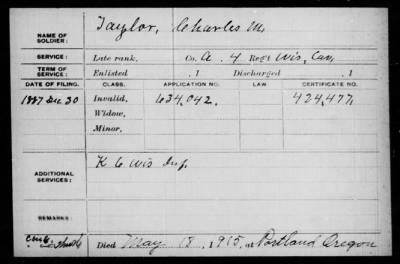 NAME OF SOLDIER: Taylor, Charles M.
SERVICE: Late rank, Co. A. 4 Reg't Wis. Cav.
TERM OF SERVICE: Enlisted , 1 Discharged , 1
DATE OF FILING. CLASS. APPLICATION NO. LAW CERTIFICATE NO.
1887 Dec 30 Invalid, 634,042. 424,477.
Widow,
Minor,
ADDITIONAL SERVICES: K 6 Wis Inf.
REMARKS:
Died May 18, 1915, at Portland Oregon